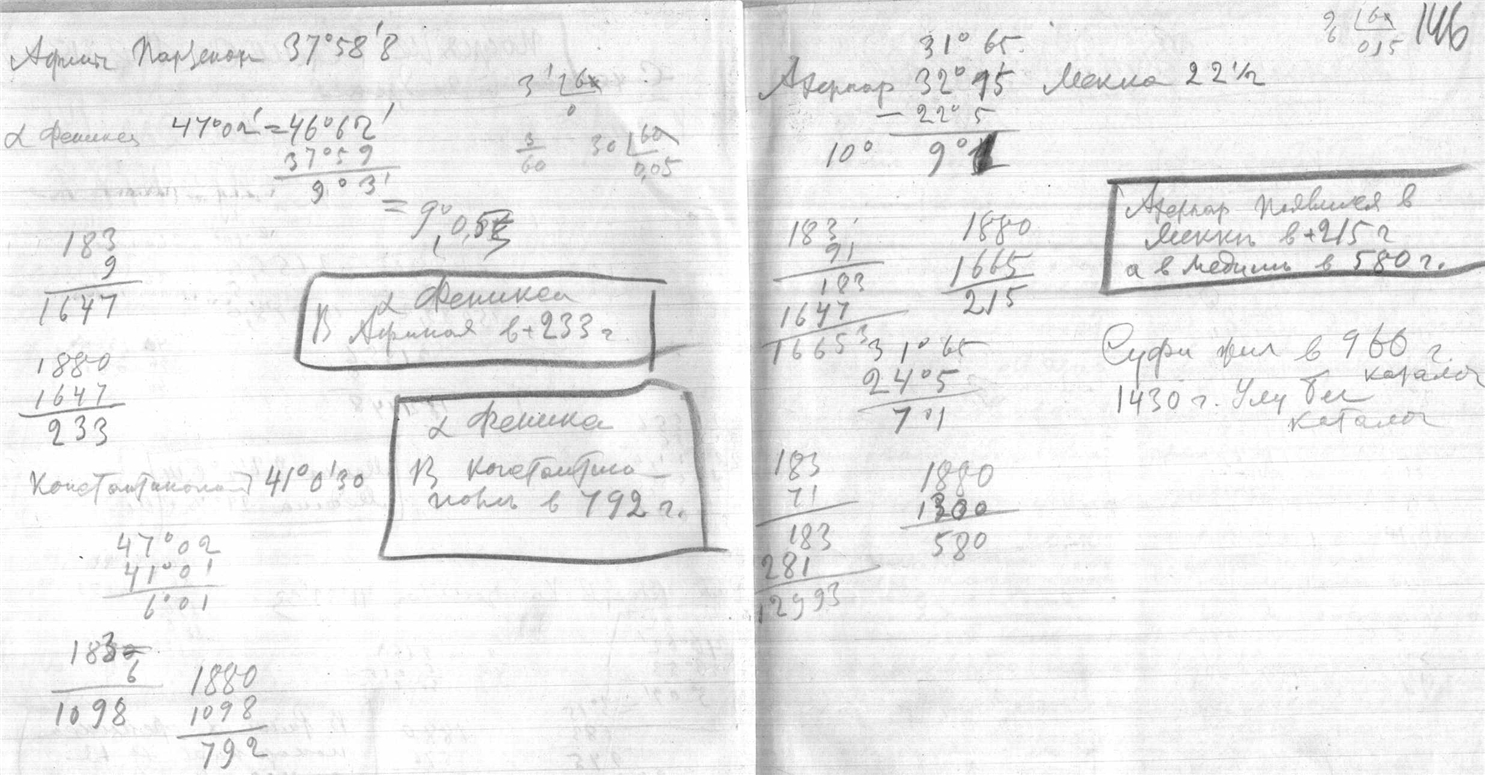 Парѳенон 37°58'8
3' 60
0
α Феникса 47°02' = 46°62'
37°59
9°3'
= 9°0,5
3
60
30 60
0,05
183
9
1647
α Феникса
В Афинах в +233 г.
1880
1647
233
α Феникса
В Константино-
поль в 792 г.
41°0'30
47°02
41°01
6°01
183
6
1098
1880
1098
792
146
9 60
0,15
31°65
Ахернар 32°15 Мекка 22½
- 22°5
10° 9°1
Ахернар появился в
Мекке в +215 г
а в Медине в 580 г.
183
91
183
1647
16653
1880
1665
215
31°65
24°5
7°1
Суфи жил в 960 г.
каталог
1430 г. Улуг Бег
каталог
183
71
183
281
12993
1880
1300
580